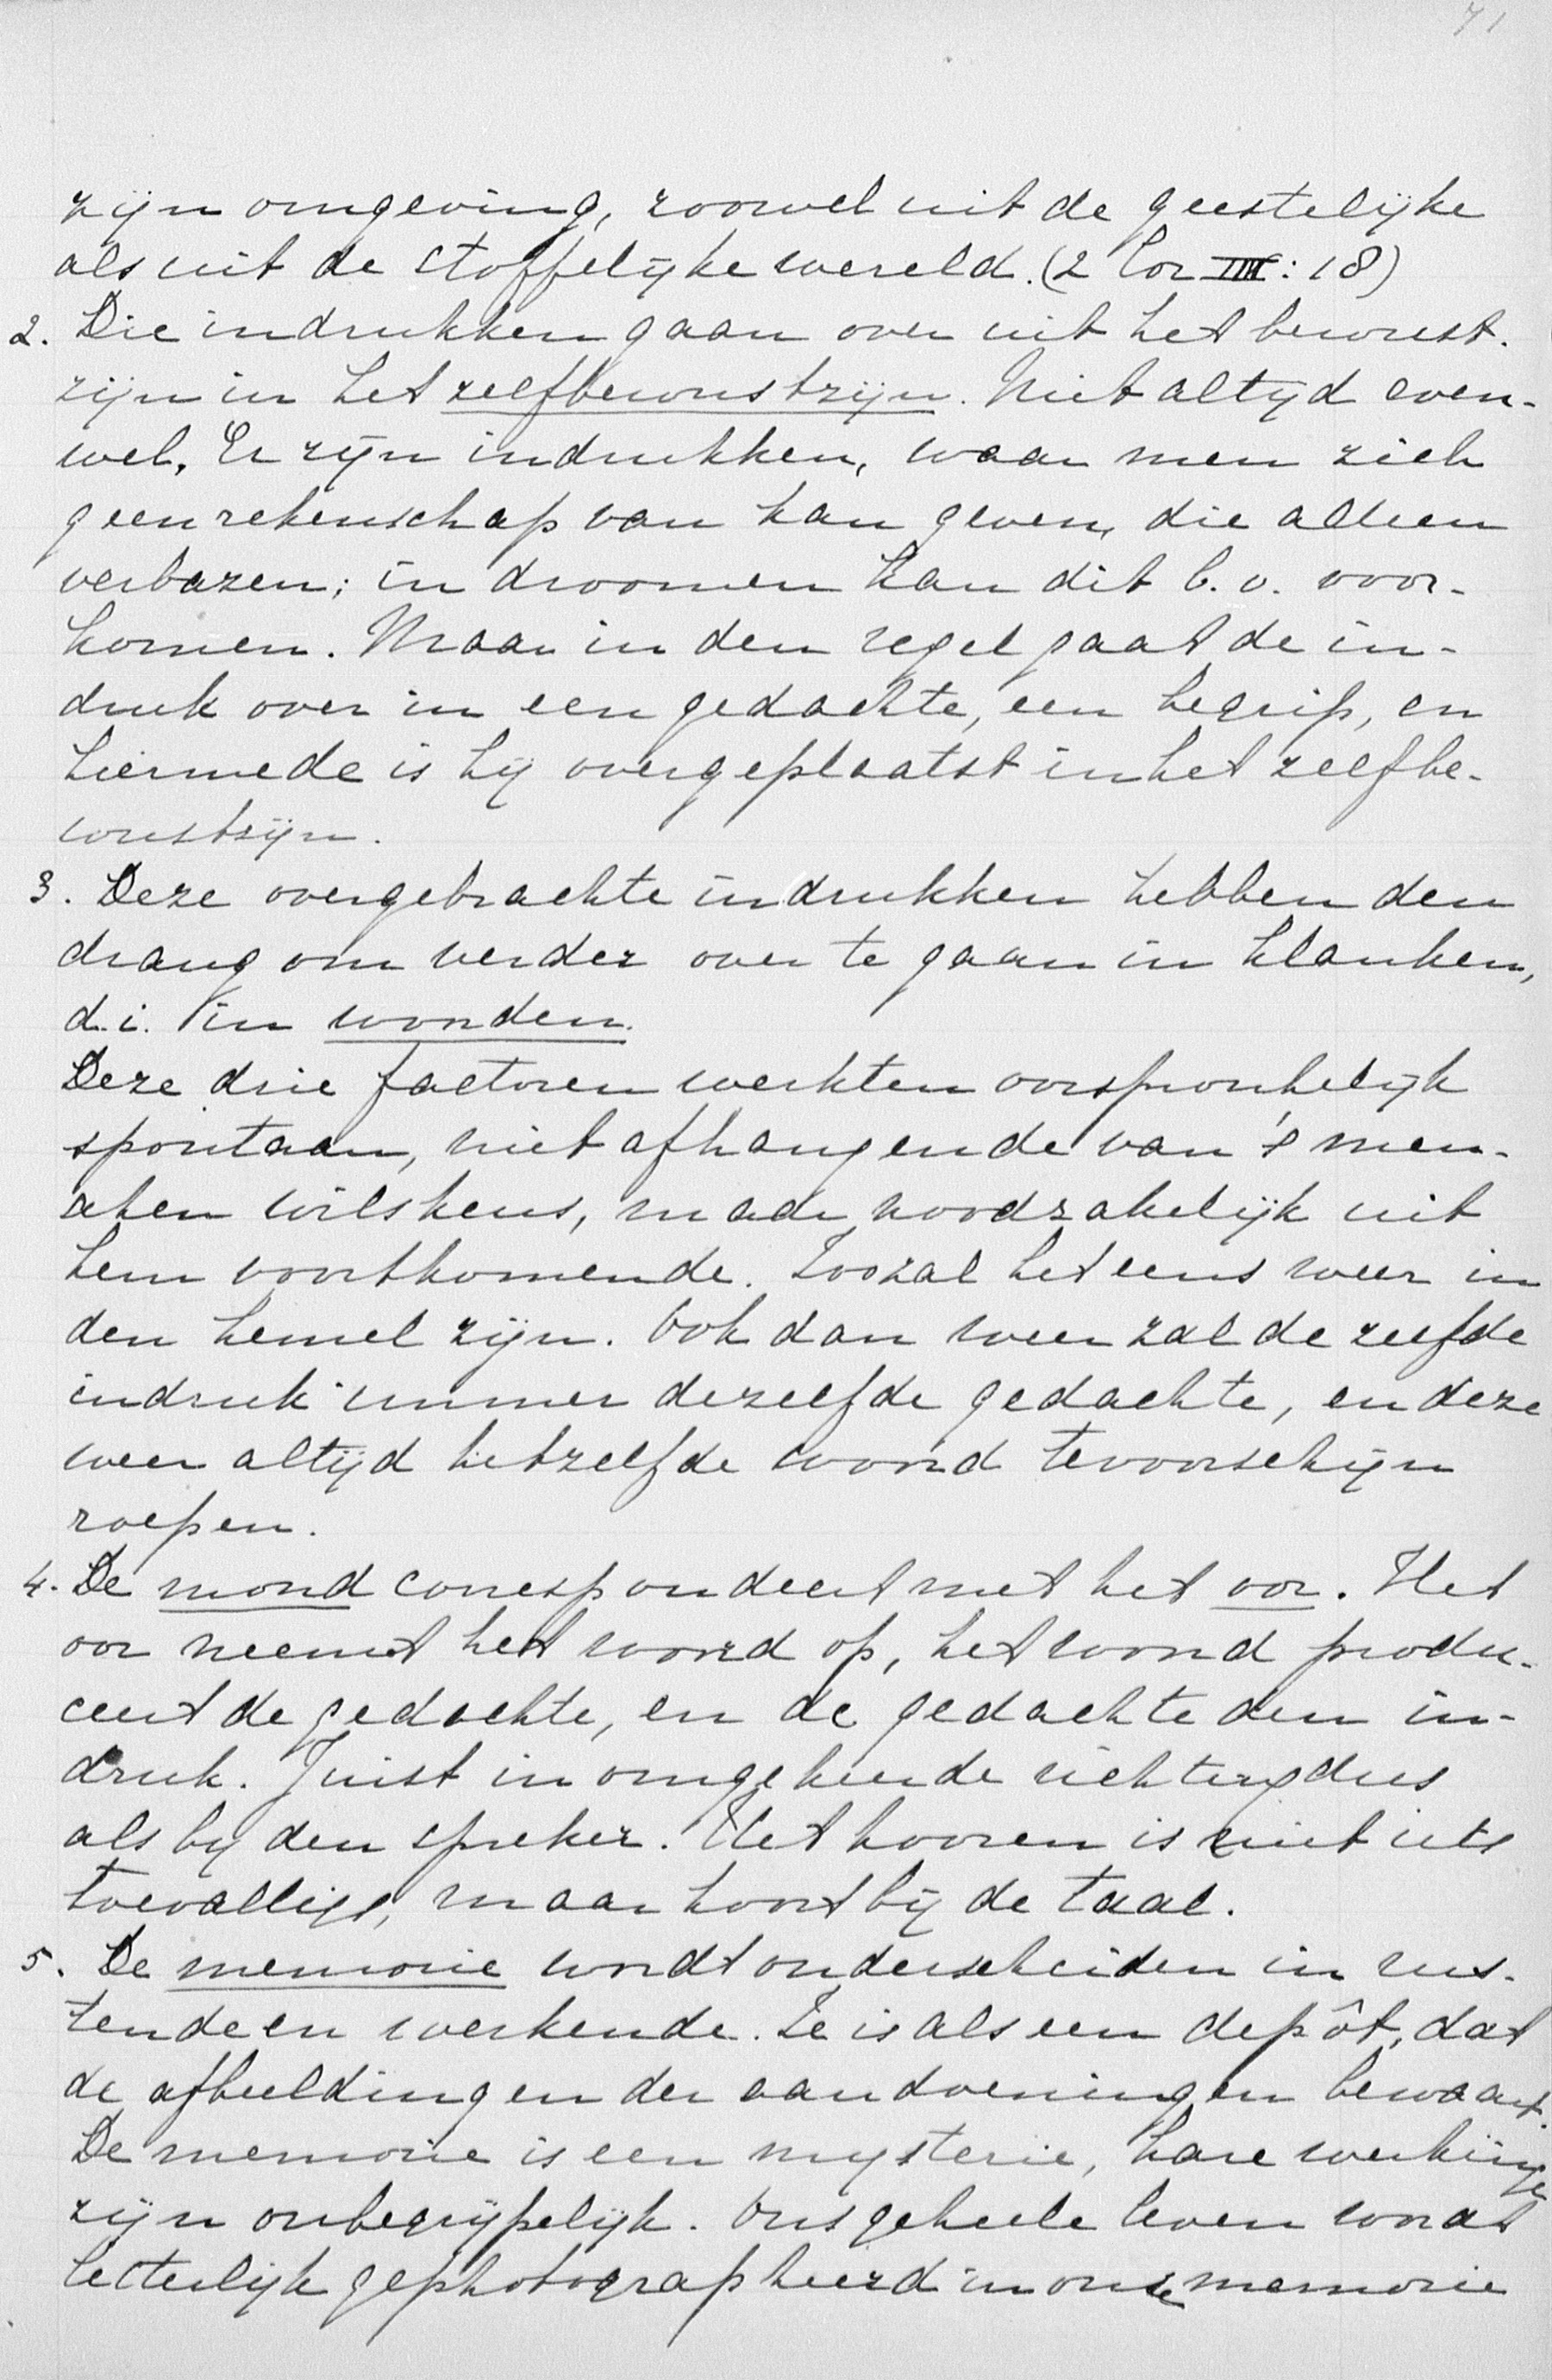 71
zijn omgeving, zoowel uit de geestelijke
als uit de stoffelijke wereld. (2 Cor III : 18)
2. Die indrukken gaan over uit het bewust-
zijn in het zelfbewustzijn. Niet altijd even-
wel. Er zijn indrukken, waar men zich
geen rekenschap van kan geven, die alleen
verbazen; in droomen kan dit b.v. voor-
komen. Maar in den regel gaat de in-
druk over in een gedachte, een begrip, en
hiermede is hij overgeplaatst in het zelfbe-
wustzijn.
3. Deze overgebrachte indrukken hebben den
drang om verder over te gaan in klanken,
d.i. in woorden.
Deze drie factoren werkten oorspronkelijk
spontaan, niet afhangende van 's men-
schen wilskeus, maar noodzakelijk uit
hem voortkomende. Zoo zal het eens weer in
den hemel zijn. Ook dan weer zal dezelfde
indruk immer dezelfde gedachte, en deze
weer altijd hetzelfde woord tevoorschijn
roepen.
4. De mond correspondeert met het oor. Het
oor neemt het woord op, het woord produ-
ceert de gedachte, en de gedachte den in-
druk. Juist in omgekeerde richting dus
als bij den spreker. Het hooren is niet iets
toevalligs, maar hoort bij de taal.
5. De memorie wordt onderscheiden in rus-
tende en werkende. Ze is als een depôt, dat
de afbeeldingen der aandoeningen bewaart.
De memorie is een mysterie, hare werkingen
zijn onbegrijpelijk. Ons geheele leven wordt
letterlijk gephotographeerd in onze memorie